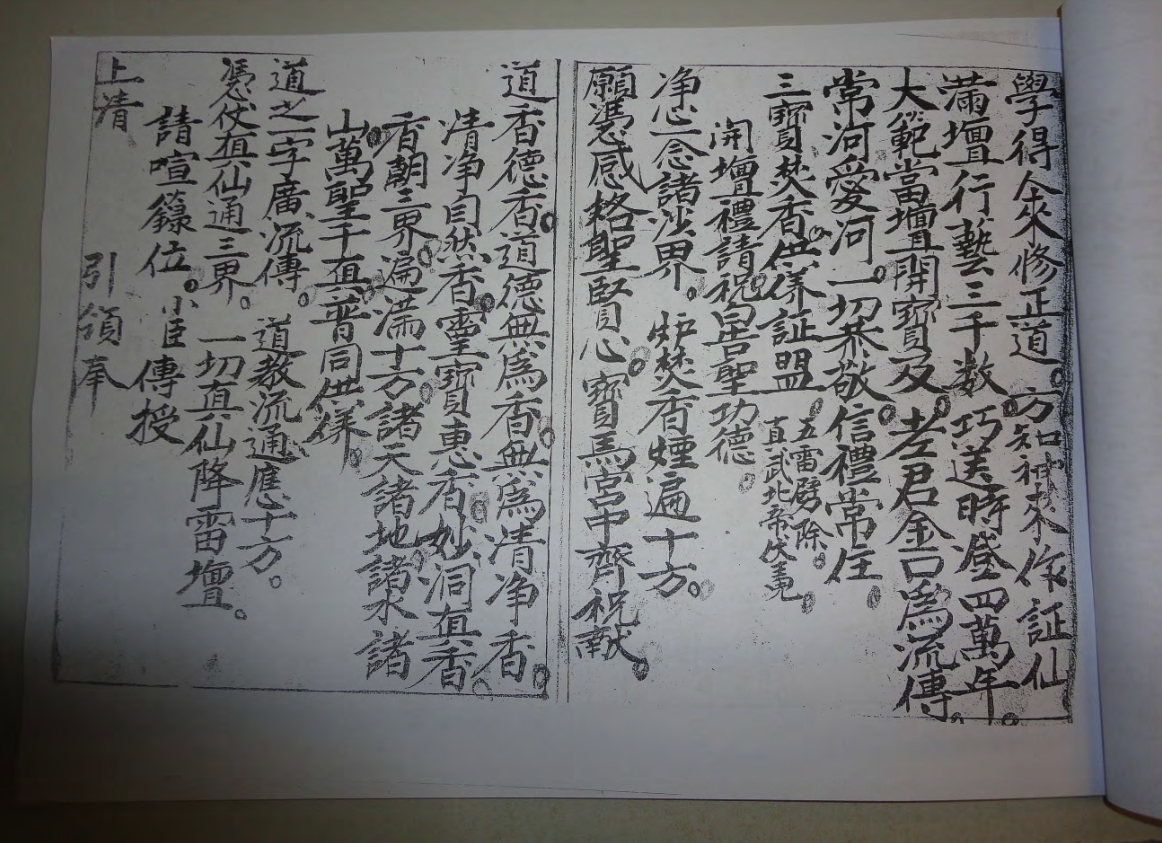 學得全來修正道。方知神來作証仙
滿壇行藝三千数。巧送時登四萬年。
大範當壇開寶及。老君金口為流傳。
常河愛河。一切恭敬。信禮常住
三寶焚香供養証盟。五雷劈除。
真武北帝伏毫。
開壇禮請祝白告聖功德。
净心一念諸沙界。炉焚香煙遍十方。
願憑感格聖賢心。寶馬宮中齊祝献。
道香德香。道德無為香。無為清净香。
清净自然香。靈寶惠香。妙洞真香。
香朝三界。遍滿十方。諸天諸地諸水諸
山。萬聖千真。普同供養。
道之一字廣流傳。道教流通應十方。
憑仗真仙通三界。一切真仙降雷壇。
請喧籙位。小臣傳授
上清 引領奉